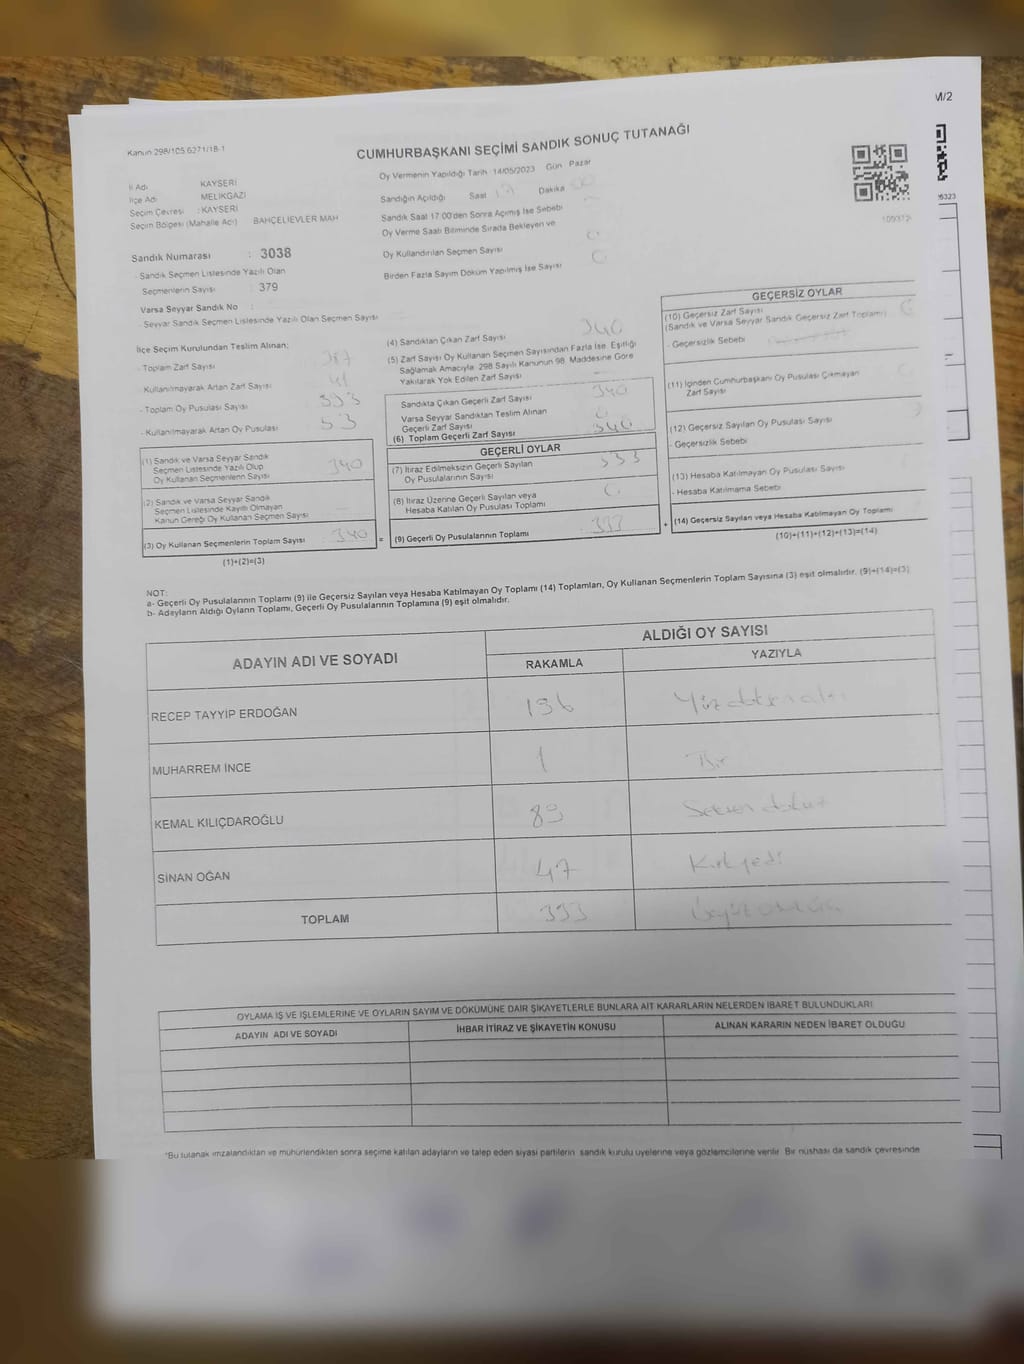 M/2
Kanun 298/105 6271/18-1
CUMHURBAŞKANI SEÇİMİ SANDIK SONUÇ TUTANAĞI
İl Adı KAYSERİ
İlçe Adı MELİKGAZİ
Seçim Çevresi : KAYSERİ
Seçim Bölgesi (Mahalle Adı) BAHÇELİEVLER MAH
Sandık Numarası : 3038
- Sandık Seçmen Listesinde Yazılı Olan
Seçmenlerin Sayısı : 379
Varsa Seyyar Sandık No :
- Seyyar Sandık Seçmen Listesinde Yazılı Olan Seçmen Sayısı
Oy Vermenin Yapıldığı Tarih 14/05/2023 Gün Pazar
Sandığın Açıldığı Saat 17 Dakika 00
Sandık Saat 17:00'den Sonra Açılmış İse Sebebi
Oy Verme Saati Bitiminde Sırada Bekleyen ve
Oy Kullandırılan Seçmen Sayısı
Birden Fazla Sayım Döküm Yapılmış İse Sayısı
İlçe Seçim Kurulundan Teslim Alınan:
- Toplam Zarf Sayısı
- Kullanılmayarak Artan Zarf Sayısı 41
- Toplam Oy Pusulası Sayısı
- Kullanılmayarak Artan Oy Pusulası 53
(1) Sandık ve Varsa Seyyar Sandık
Seçmen Listesinde Yazılı Olup
Oy Kullanan Seçmenlerin Sayısı 340
(2) Sandık ve Varsa Seyyar Sandık
Seçmen Listesinde Kayıtlı Olmayan
Kanun Gereği Oy Kullanan Seçmen Sayısı
(3) Oy Kullanan Seçmenlerin Toplam Sayısı 340 =
(1)+(2)=(3)
(4) Sandıktan Çıkan Zarf Sayısı 340
(5) Zarf Sayısı Oy Kullanan Seçmen Sayısından Fazla İse, Eşitliği
Sağlamak Amacıyla 298 Sayılı Kanunun 98. Maddesine Göre
Yakılarak Yok Edilen Zarf Sayısı
Sandıkta Çıkan Geçerli Zarf Sayısı 340
Varsa Seyyar Sandıktan Teslim Alınan
Geçerli Zarf Sayısı 0
(6) Toplam Geçerli Zarf Sayısı 340
GEÇERLİ OYLAR
(7) İtiraz Edilmeksizin Geçerli Sayılan
Oy Pusulalarının Sayısı 333
(8) İtiraz Üzerine Geçerli Sayılan veya
Hesaba Katılan Oy Pusulası Toplamı 0
(9) Geçerli Oy Pusulalarının Toplamı 333 +
GEÇERSİZ OYLAR
(10) Geçersiz Zarf Sayısı
(Sandık ve Varsa Seyyar Sandık Geçersiz Zarf Toplamı)
- Geçersizlik Sebebi
(11) İçinden Cumhurbaşkanı Oy Pusulası Çıkmayan
Zarf Sayısı
(12) Geçersiz Sayılan Oy Pusulası Sayısı
- Geçersizlik Sebebi
(13) Hesaba Katılmayan Oy Pusulası Sayısı
- Hesaba Katılmama Sebebi
(14) Geçersiz Sayılan veya Hesaba Katılmayan Oy Toplamı
(10)+(11)+(12)+(13)=(14)
NOT:
a- Geçerli Oy Pusulalarının Toplamı (9) ile Geçersiz Sayılan veya Hesaba Katılmayan Oy Toplamı (14) Toplamları, Oy Kullanan Seçmenlerin Toplam Sayısına (3) eşit olmalıdır. (9)+(14)=(3)
b- Adayların Aldığı Oyların Toplamı, Geçerli Oy Pusulalarının Toplamına (9) eşit olmalıdır.
ADAYIN ADI VE SOYADI ALDIĞI OY SAYISI
RAKAMLA YAZIYLA
RECEP TAYYİP ERDOĞAN 196
MUHARREM İNCE 1 Bir
KEMAL KILIÇDAROĞLU 89 Seksen dokuz
SİNAN OĞAN 47 Kırkyedi
TOPLAM 333
OYLAMA İŞ VE İŞLEMLERİNE VE OYLARIN SAYIM VE DÖKÜMÜNE DAİR ŞİKAYETLERLE BUNLARA AİT KARARLARIN NELERDEN İBARET BULUNDUKLARI
ADAYIN ADI VE SOYADI İHBAR İTİRAZ VE ŞİKAYETİN KONUSU ALINAN KARARIN NEDEN İBARET OLDUĞU
*Bu tutanak imzalandıktan ve mühürlendikten sonra seçime katılan adayların ve talep eden siyasi partilerin sandık kurulu üyelerine veya gözlemcilerine verilir. Bir nüshası da sandık çevresinde